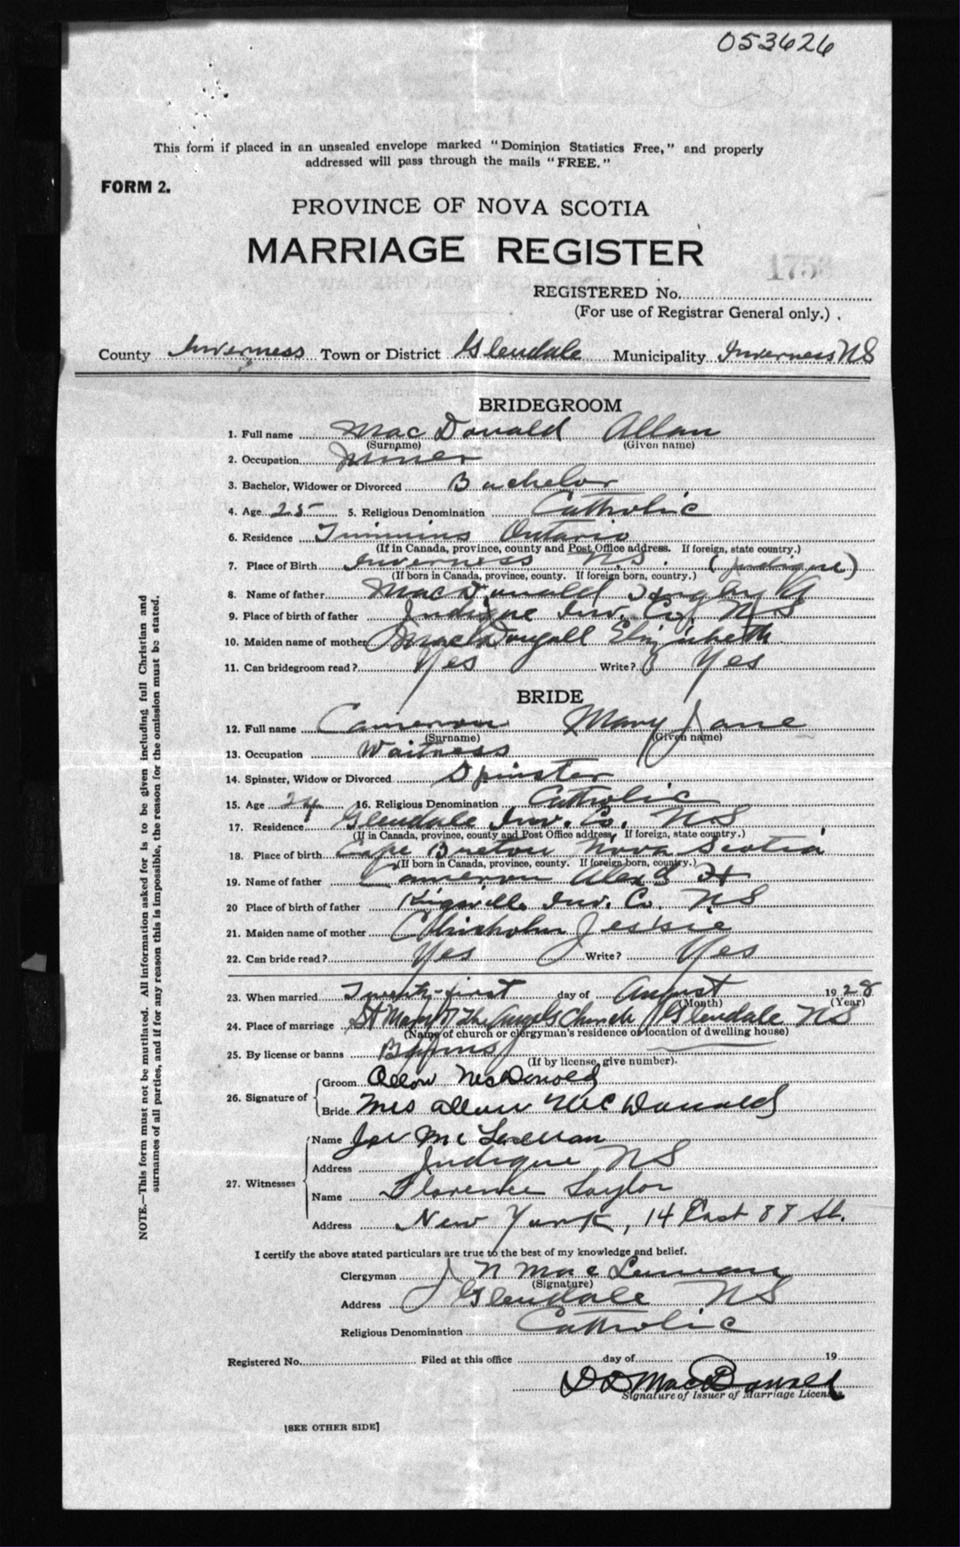 053626
This form if placed in an unsealed envelope marked "Dominion Statistics Free," and properly
addressed will pass through the mails "FREE."
FORM 2.
PROVINCE OF NOVA SCOTIA
MARRIAGE REGISTER
1753
REGISTERED No.
(For use of Registrar General only.)
County Inverness Town or District Glendale Municipality Inverness NS
BRIDEGROOM
1. Full name MacDonald Allan
(Surname) (Given name)
2. Occupation Miner
3. Bachelor, Widower or Divorced Bachelor
4. Age 25 5. Religious Denomination Catholic
6. Residence Timmins Ontario
(If in Canada, province, county and Post Office address. If foreign, state country.)
7. Place of Birth Inverness N.S. (Judique)
(If born in Canada, province, county. If foreign born, country.)
8. Name of father MacDonald
9. Place of birth of father Judique Inv. Co. NS
10. Maiden name of mother MacDougall Elizabeth
11. Can bridegroom read? Yes Write? Yes
BRIDE
12. Full name Cameron Mary Jane
(Surname) (Given name)
13. Occupation Waitness
14. Spinster, Widow or Divorced Spinster
15. Age 24 16. Religious Denomination Catholic
17. Residence Glendale Inv. Co. NS
(If in Canada, province, county and Post Office address. If foreign, state country.)
18. Place of birth Cape Breton Nova Scotia
(If born in Canada, province, county. If foreign born, country.)
19. Name of father Cameron
20 Place of birth of father Kingsville Inv. Co. NS
21. Maiden name of mother Chisholm Jessie
22. Can bride read? Yes Write? Yes
23. When married Twenty-first day of August 1928
(Month) (Year)
24. Place of marriage St Mary of the Angels Church Glendale NS
(Name of church or clergyman's residence or location of dwelling house)
25. By license or banns
(If by license, give number).
26. Signature of
Groom Allan McDonald
Bride Mrs Allan McDonald
27. Witnesses
Name McLellan
Address Judique NS
Name Florence Taylor
Address New York, 14 East 88 St.
I certify the above stated particulars are true to the best of my knowledge and belief.
Clergyman J N MacLennan
(Signature)
Address Glendale NS
Religious Denomination Catholic
Registered No. Filed at this office day of 19
D D MacDonald
Signature of Issuer of Marriage License
[SEE OTHER SIDE]
NOTE.—This form must not be mutilated. All information asked for is to be given including full Christian and
surnames of all parties, and if for any reason this is impossible, the reason for the omission must be stated.